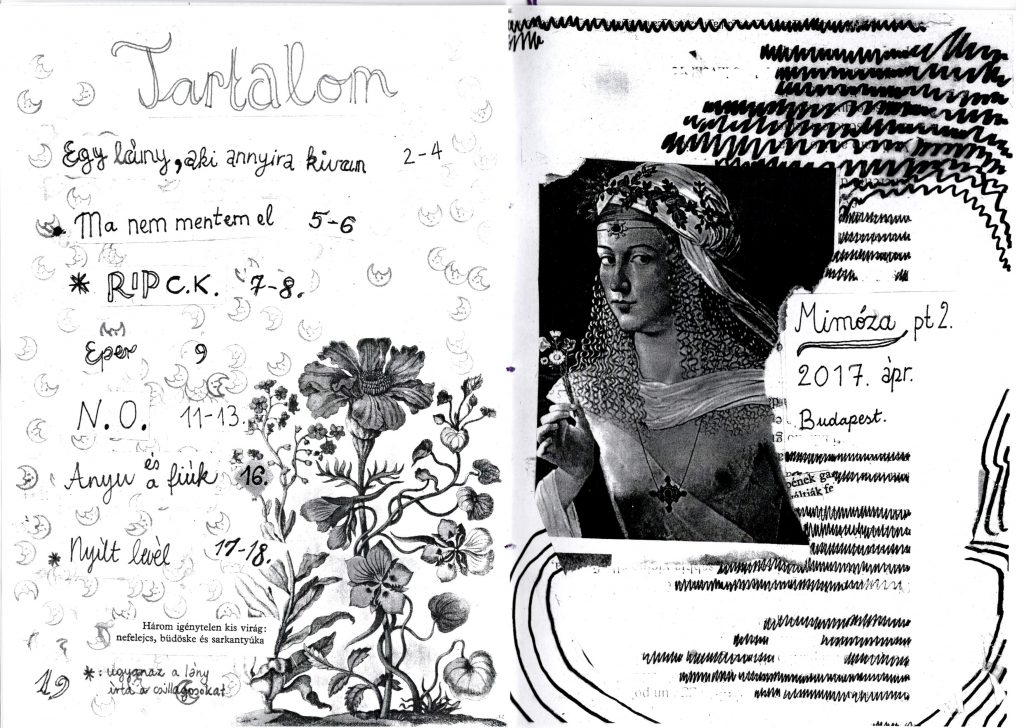 Tartalom
Egy lány, aki annyira kivan 2-4
Ma nem mentem el 5-6
* RIP C.K. 7-8.
Eper 9
N.O. 11-13.
Anyu és a fiúk 16.
* Nyílt levél 17-18.
Három igénytelen kis virág:
nefelejcs, büdöske és sarkantyúka
*: ugyanaz a lány
írta a csillagozokat
19
Mimóza pt 2.
2017. ápr.
Budapest.
pének ga
áltiák fe